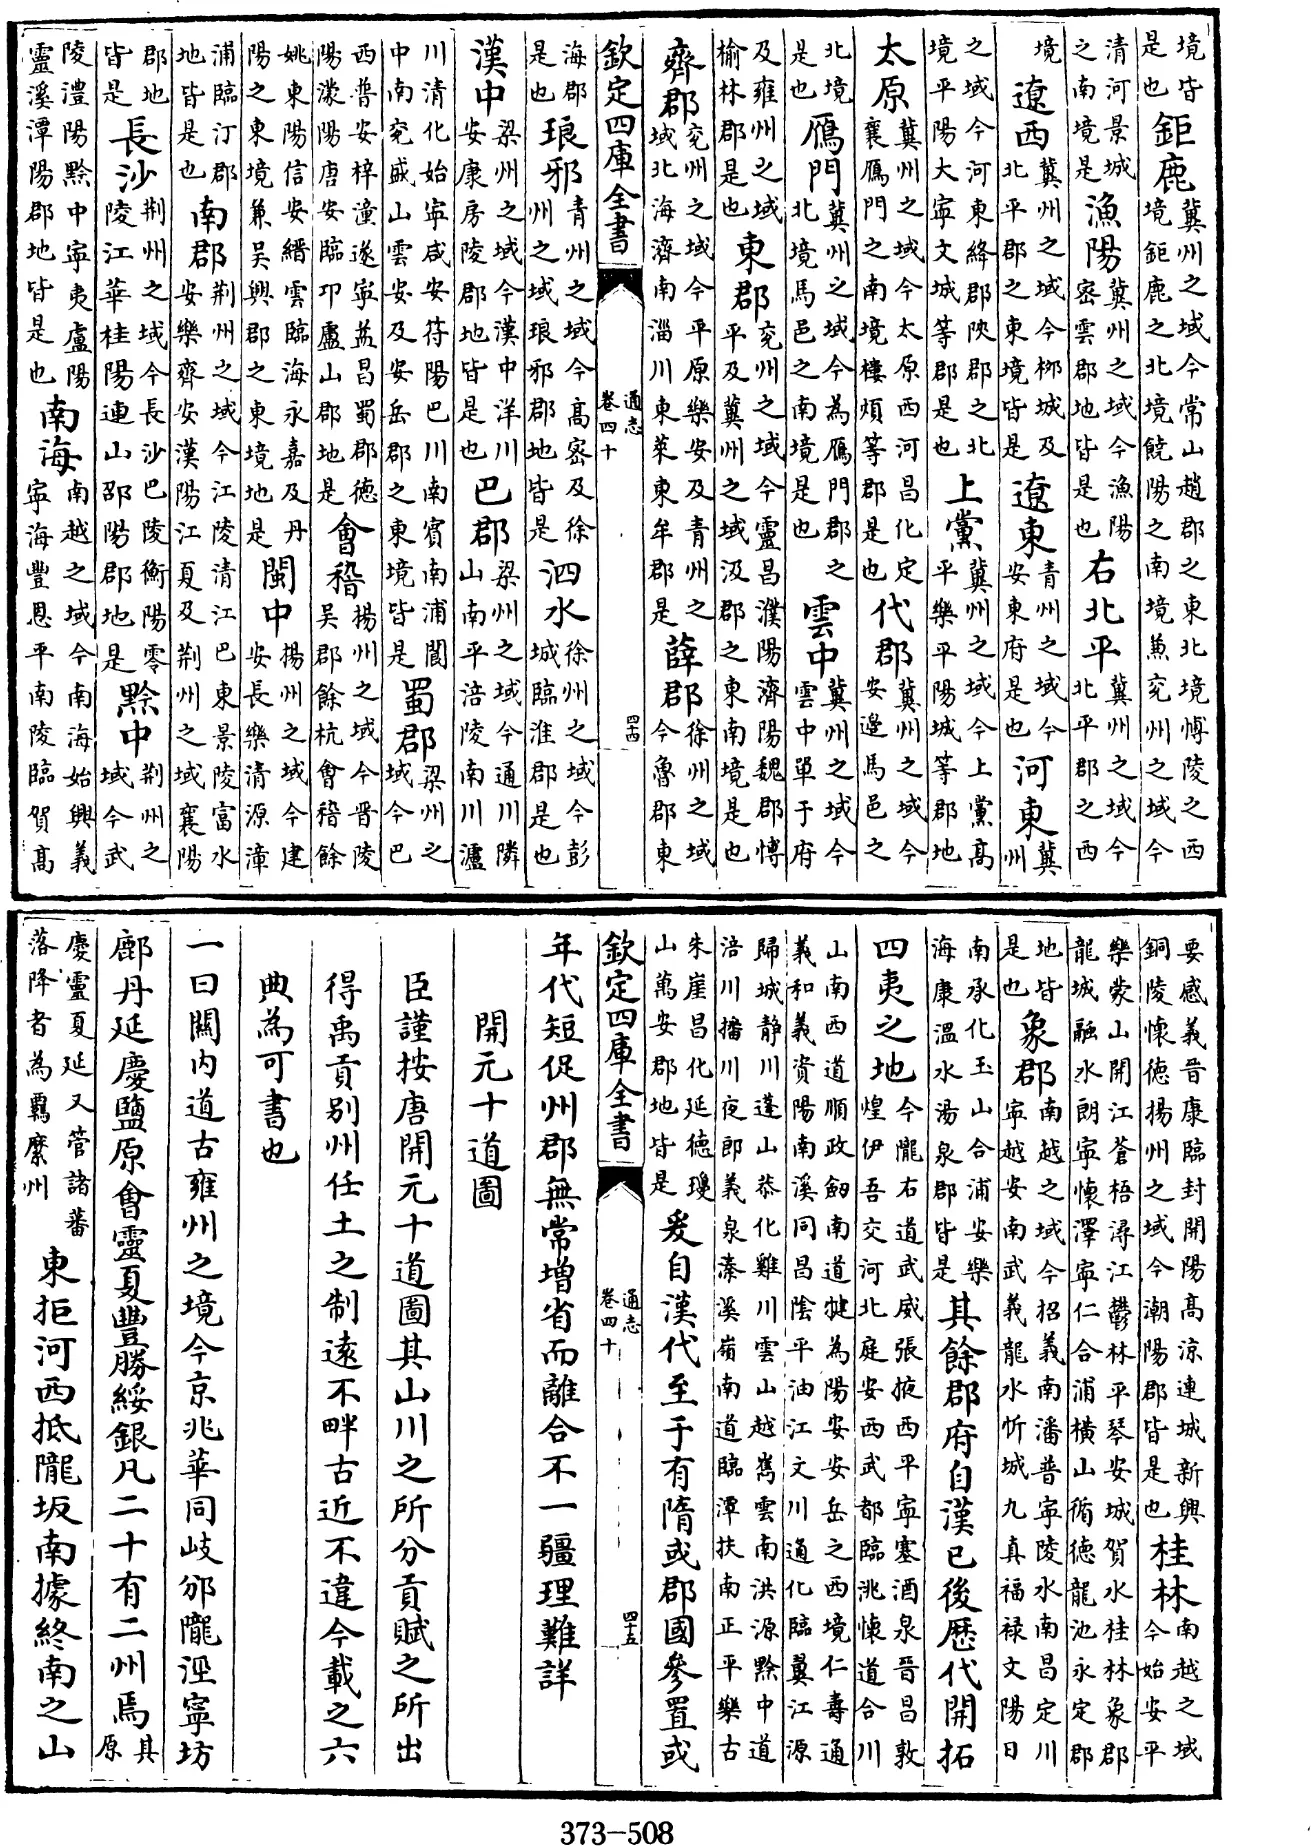 境皆是也鉅鹿冀州之域今常山趙郡之東北境博陵之西境鉅鹿之北境饒陽之南境兼兖州之域今
清河景城之南境是漁陽冀州之域今漁陽密雲郡地皆是也右北平冀州之域今北平郡之西
境遼西冀州之域今栁城及北平郡之東境皆是遼東青州之域今安東府是也河東冀州
之域今河東絳郡陜郡之北境平陽大寧文城等郡是也上黨冀州之域今上黨高平樂平陽城等郡地
太原冀州之域今太原西河昌化定襄鴈門之南境樓煩等郡是也代郡冀州之域今安邊馬邑之
北境是也鴈門冀州之域今為鴈門郡之北境馬邑之南境是也雲中冀州之域今雲中單于府
及雍州之域榆林郡是也東郡兖州之域今靈昌濮陽濟陽魏郡博平及冀州之域汲郡之東南境是也
齊郡兖州之域今平原樂安及青州之域北海濟南淄川東萊東牟郡是薛郡徐州之域今魯郡東
欽定四庫全書 通志 卷四十 四十四
海郡是也琅邪青州之域今高密及徐州之域琅邪郡地皆是泗水徐州之域今彭城臨淮郡是也
漢中梁州之域今漢中洋川安康房陵郡地皆是也巴郡梁州之域今通川隣山南平涪陵南川瀘
川清化始寧咸安符陽巴川南賓南浦閬中南充盛山雲安及安岳郡之東境皆是蜀郡梁州之域今巴
西普安梓潼遂寧益昌蜀郡德陽濛陽唐安臨卭盧山郡地是會稽揚州之域今晋陵吳郡餘杭會稽餘
姚東陽信安縉雲臨海永嘉及丹陽之東境兼吳興郡之東境地是閩中揚州之域今建安長樂清源漳
浦臨汀郡地皆是也南郡荆州之域今江陵清江巴東景陵富水安樂齊安漢陽江夏及荆州之域襄陽
郡地皆是長沙荆州之域今長沙巴陵衡陽零陵江華桂陽連山邵陽郡地是黔中荆州之域今武
陵澧陽黔中寧夷盧陽靈溪潭陽郡地皆是也南海南越之域今南海始興義寧海豐恩平南陵臨賀高
要感義晋康臨封開陽高涼連城新興銅陵懷德揚州之域今潮陽郡皆是也桂林南越之域今始安平
樂蒙山開江蒼梧潯江鬱林平琴安城賀水桂林象郡龍城融水朗寧懷澤寧仁合浦橫山循德龍池永定郡
地皆是也象郡南越之域今招義南潘普寧陵水南昌定川寧越安南武義龍水忻城九真福禄文陽日
南承化玉山合浦安樂海康溫水湯泉郡皆是其餘郡府自漢已後歴代開拓
四夷之地今隴右道武威張掖西平寧塞酒泉晋昌敦煌伊吾交河北庭安西武都臨洮懷道合川
山南西道順政劒南道犍為陽安安岳之西境仁壽通義和義資陽南溪同昌陰平油江文川通化臨翼江源
歸城静川蓬山恭化雞川雲山越嶲雲南洪源黔中道涪川播川夜郎義泉溱溪嶺南道臨潭扶南正平樂古
朱崖昌化延德瓊山萬安郡地皆是爰自漢代至于有隋或郡國參置或
欽定四庫全書 通志 卷四十 四十五
年代短促州郡無常増省而離合不一疆理難詳
開元十道圖
臣謹按唐開元十道圖其山川之所分貢賦之所出
得禹貢别州任土之制遠不畔古近不違今載之六
典為可書也
一曰關内道古雍州之境今京兆華同岐邠隴涇寧坊
鄜丹延慶鹽原會靈夏豐勝綏銀凡二十有二州焉其原
慶靈夏延又管諸蕃落降者為羈縻州東拒河西抵隴坂南據終南之山
373-508